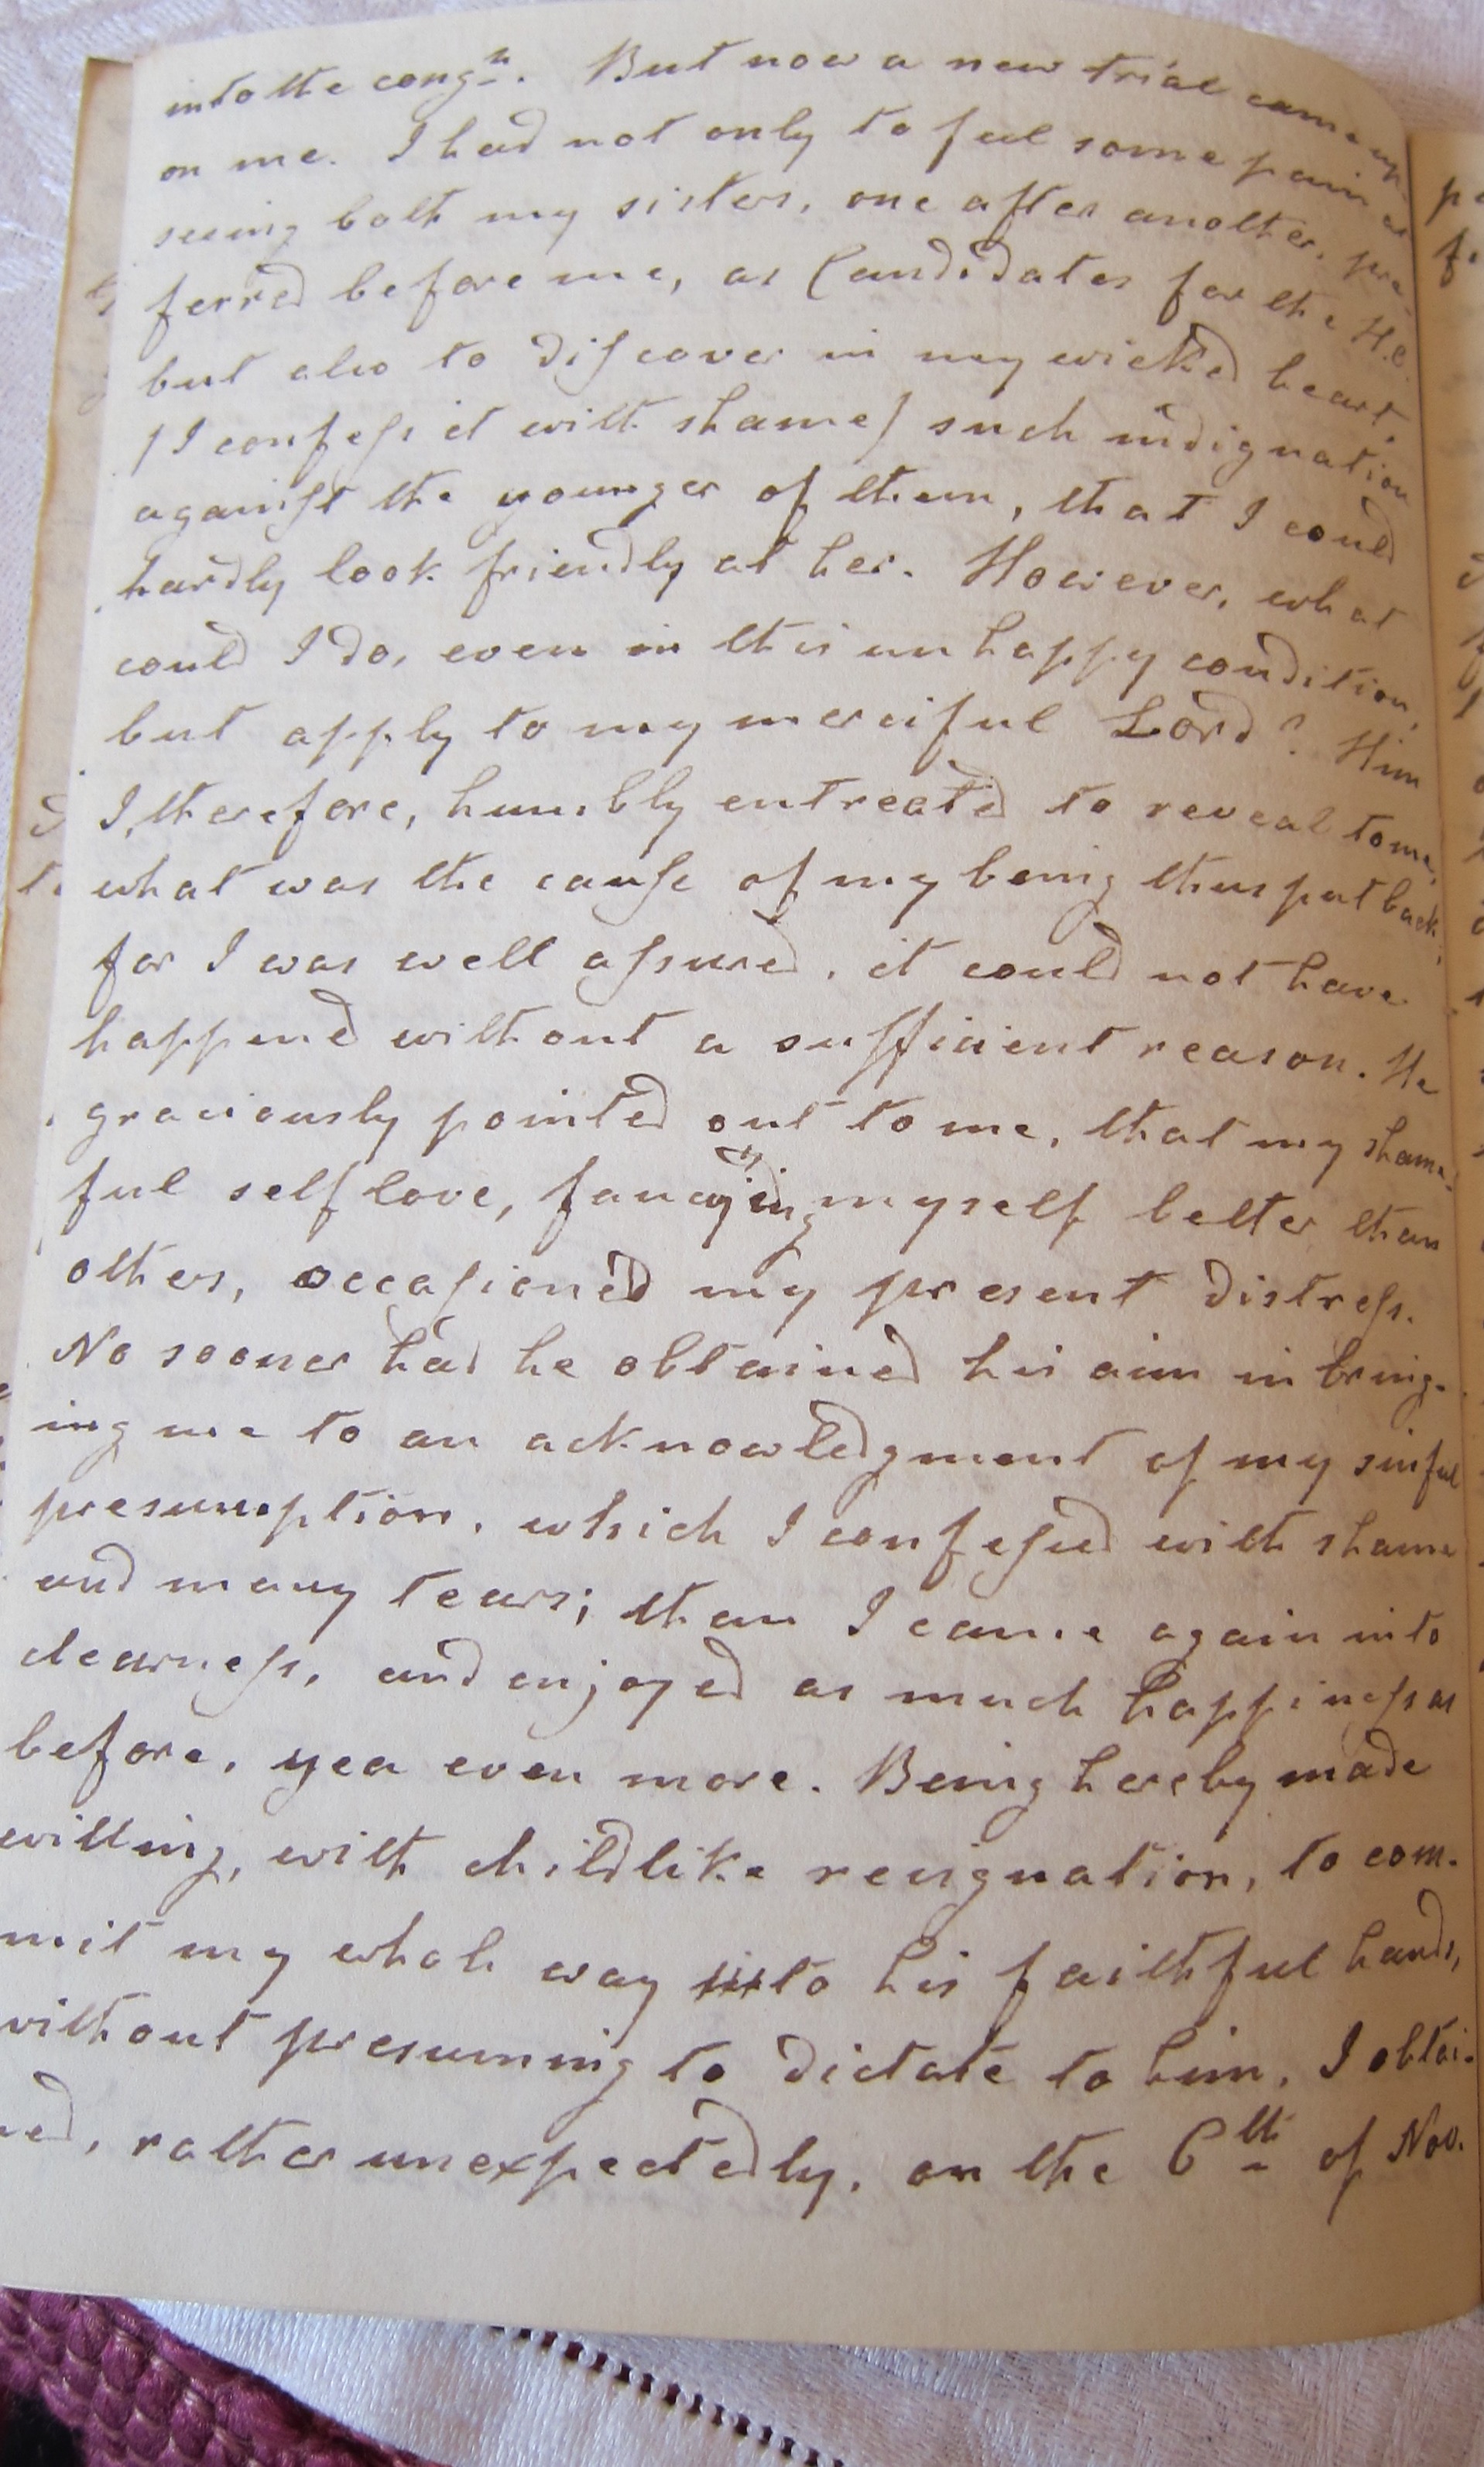 into the congn. But now a new trial came up-
on me. I had not only to feel some pain at
seeing both my sisters, one after another, pre-
ferred before me, as Candidates for the H.C.
but also to diſcover in my wicked heart,
/I confeſs it with shame/ such indignation
againſt the younger of them, that I could
hardly look friendly at her. However, what
could I do, even in this unhappy condition,
but apply to my merciful Lord? Him
I, therefore, humbly entreated to reveal to me,
what was the cauſe of my being thus put back,
for I was well aſsured, it could not have
happened without a sufficient reason. He
graciously pointed out to me, that my shame-
ful self love, fancying myself better than
others, occaſioned my present distreſs.
No sooner had he obtained his aim in bring-
ing me to an acknowledgment of my sinful
presumption, which I confeſsed with shame
and many tears; than I came again into
clearneſs, and enjoyed as much happineſs as
before, yea even more. Being hereby made
willing, with childlike resignation, to com-
mit my whole way into his faithful hands,
without presuming to dictate to him, I obtai-
ned, rather unexpectedly, on the 6th of Nov.